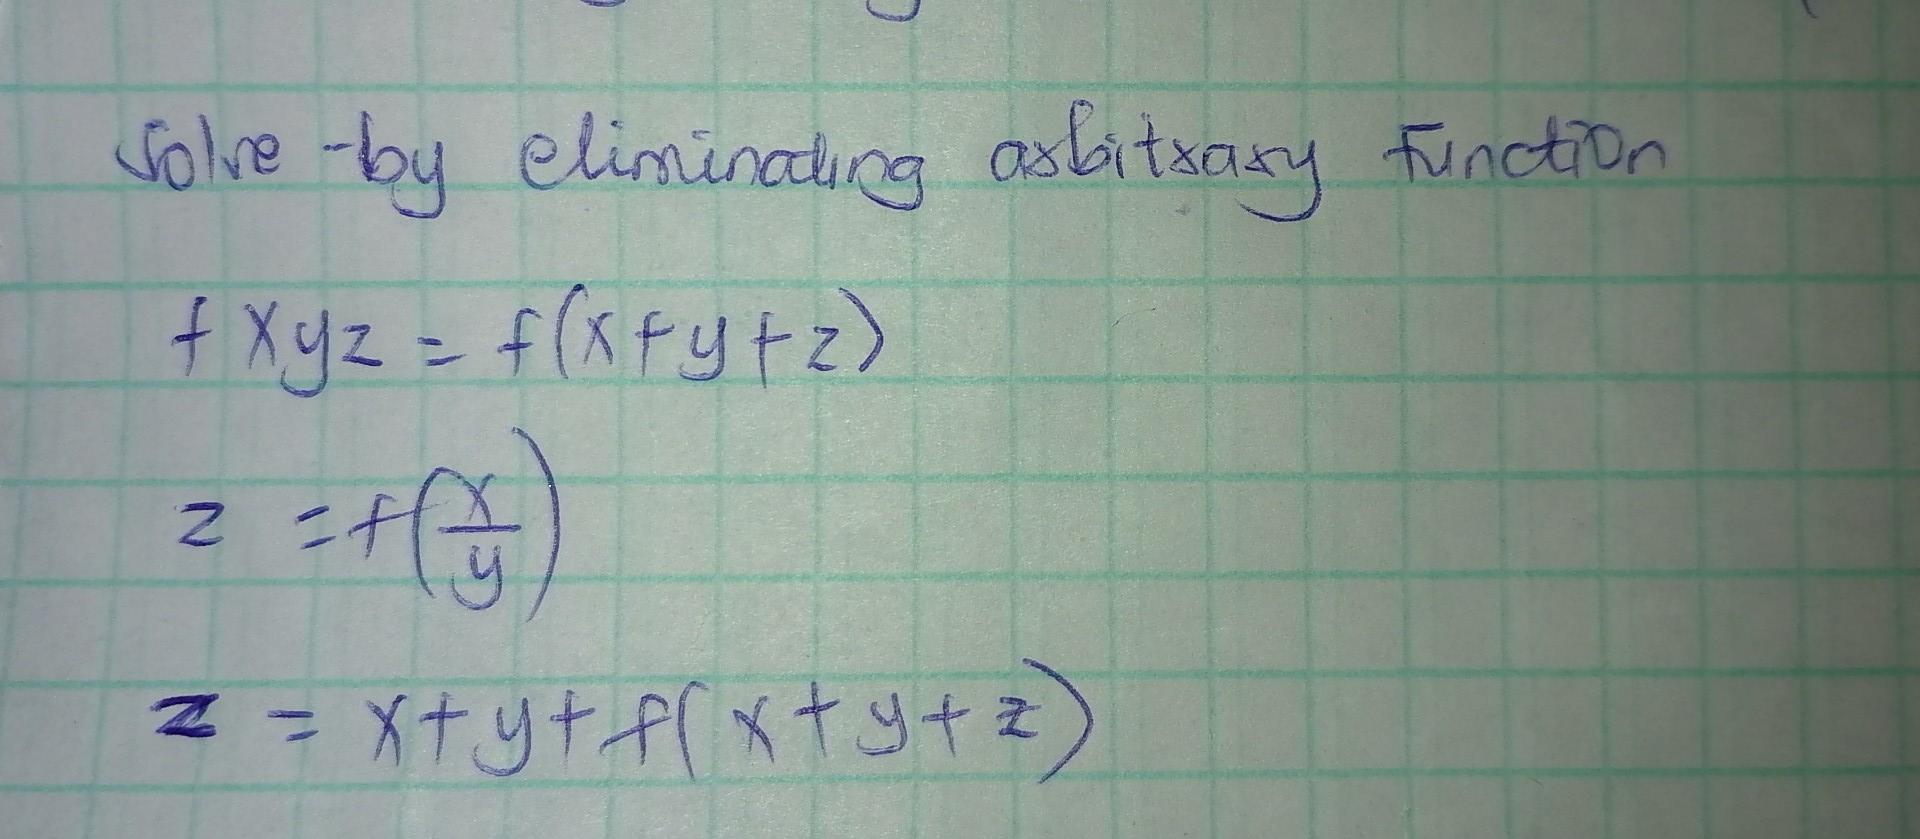 Solve -by eliminating arbitrary function
f xyz = f(x+y+z)
z = f(x/y)
z = x+y+f(x+y+z)